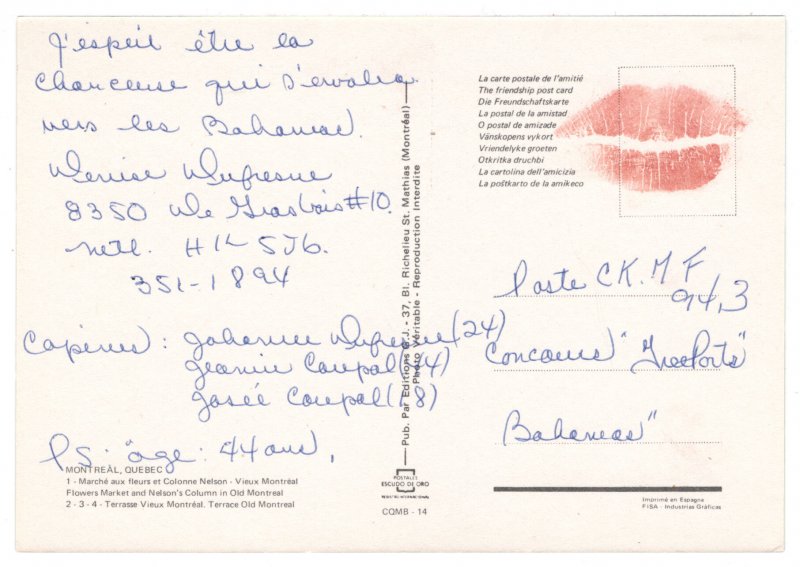 J'espèir être la
chanceuse qui s'envolera
vers les Bahamas.
Denise Dufresne
8350 De Grosbois #10.
Mtl. H1K 5J6.
351-1894
Copines: Johanne Dufresne (24)
Jeannine Coupal (44)
Josée Coupal (18)
PS: âge: 44 ans,
MONTREÀL, QUEBEC
1 - Marché aux fleurs et Colonne Nelson - Vieux Montréal
Flowers Market and Nelson's Column in Old Montreal
2 - 3 - 4 - Terrasse Vieux Montréal. Terrace Old Montreal
Pub. Par Editions J. - 37, Bl. Richelieu St. Mathias (Montréal)
Photo Véritable - Reproduction Interdite
POSTALES
ESCUDO DE ORO
CQMB - 14
La carte postale de l'amitié
The friendship post card
Die Freundschaftskarte
La postal de la amistad
O postal de amizade
Vänskopens vykort
Vriendelyke groeten
Otkritka druchbi
La cartolina dell'amicizia
La poŝtkarto de la amikeco
Poste C.K.M.F
94,3
Concours "
Bahamas"
Imprimé en Espagne
FISA - Industrias Gráficas